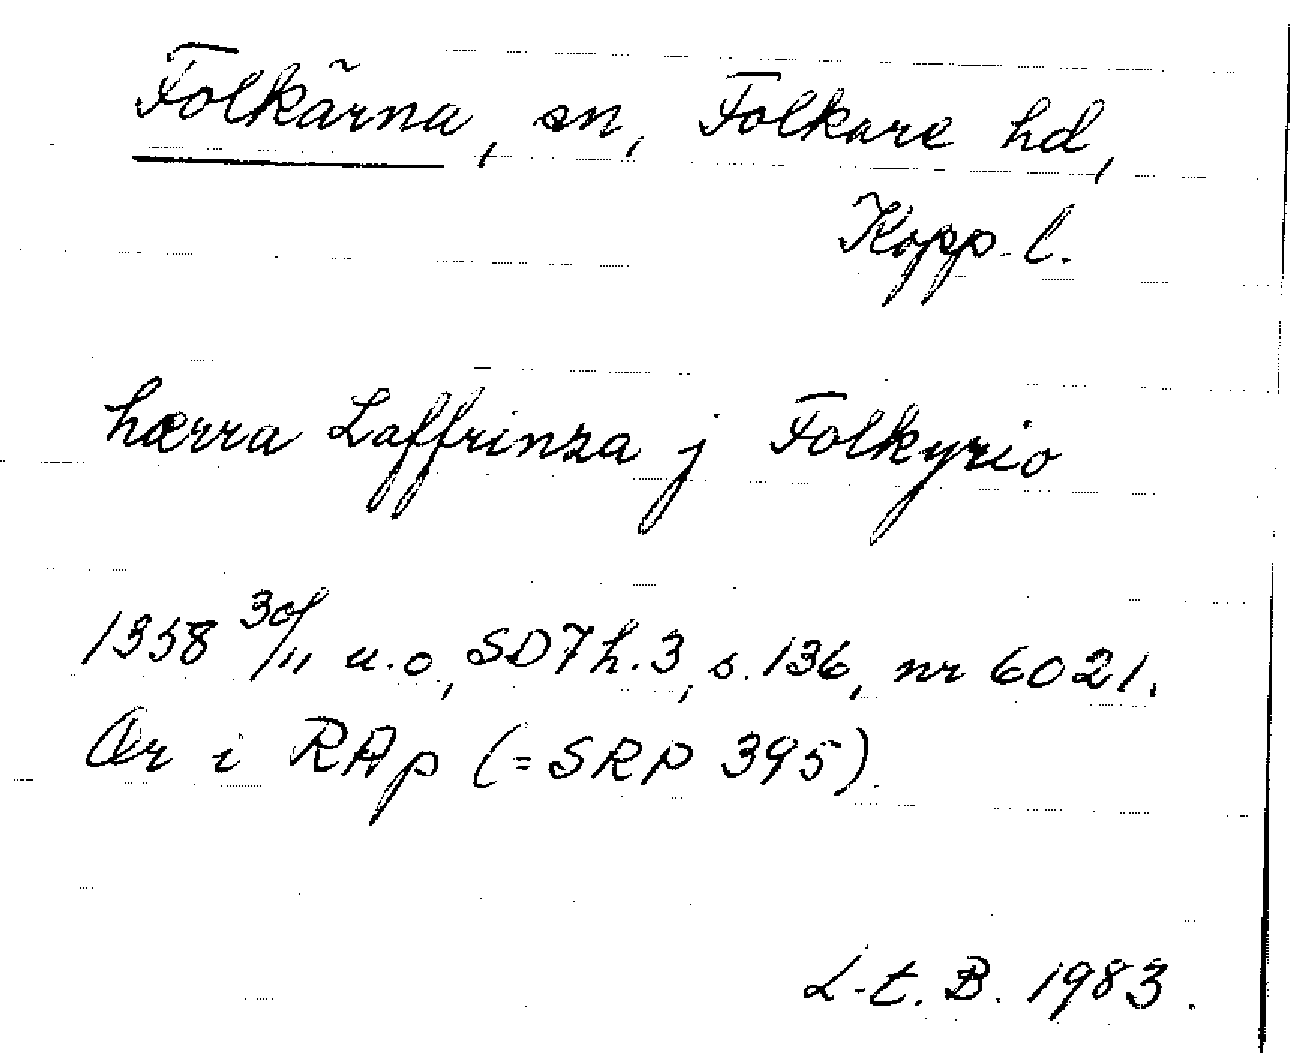 Folkärna, sn, Folkare hd,
Kopp. l.
hærra Laffrinza j Folkyrio
1358 30/11 u.o., SD7 h.3, s. 136, nr 6021.
Or i RAp (=SRP 395).
L-t. B. 1983.